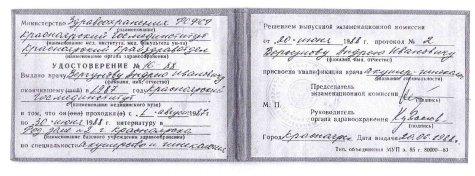 Министерство Здравоохранения РСФСР
(наименование)
Красноярский Госмединститут
(наименование мед. института, мед. факультета ун-та)
Красноярский Крайздравотдел
(наименование органа здравоохранения)
УДОСТОВЕРЕНИЕ № 10-88
Выдано врачу Андрею Ивановичу
(фамилия, имя, отчество)
окончившему (шей) в 1987 году Красноярский
Госмединститут
(наименование медицинского вуза)
в том, что он проходил с 1 августа
по 30 июня 1988 г. интернатуру в
г. Красноярска
(наименование базового учреждения здравоохранения)
по специальности акушерство и гинекология
Решением выпускной экзаменационной комиссии
от 20 июня 1988 г. протокол № 2
Андрею Ивановичу
(фамилия, имя, отчество)
присвоена квалификация врача акушер-гинеколог
Председатель
экзаменационной комиссии
(подпись)
М. П.
Руководитель
органа здравоохранения
(подпись)
Город Красноярск Дата выдачи 20.06.1988 г.
Тип. объединения МУП з. 85 г. 80000—83